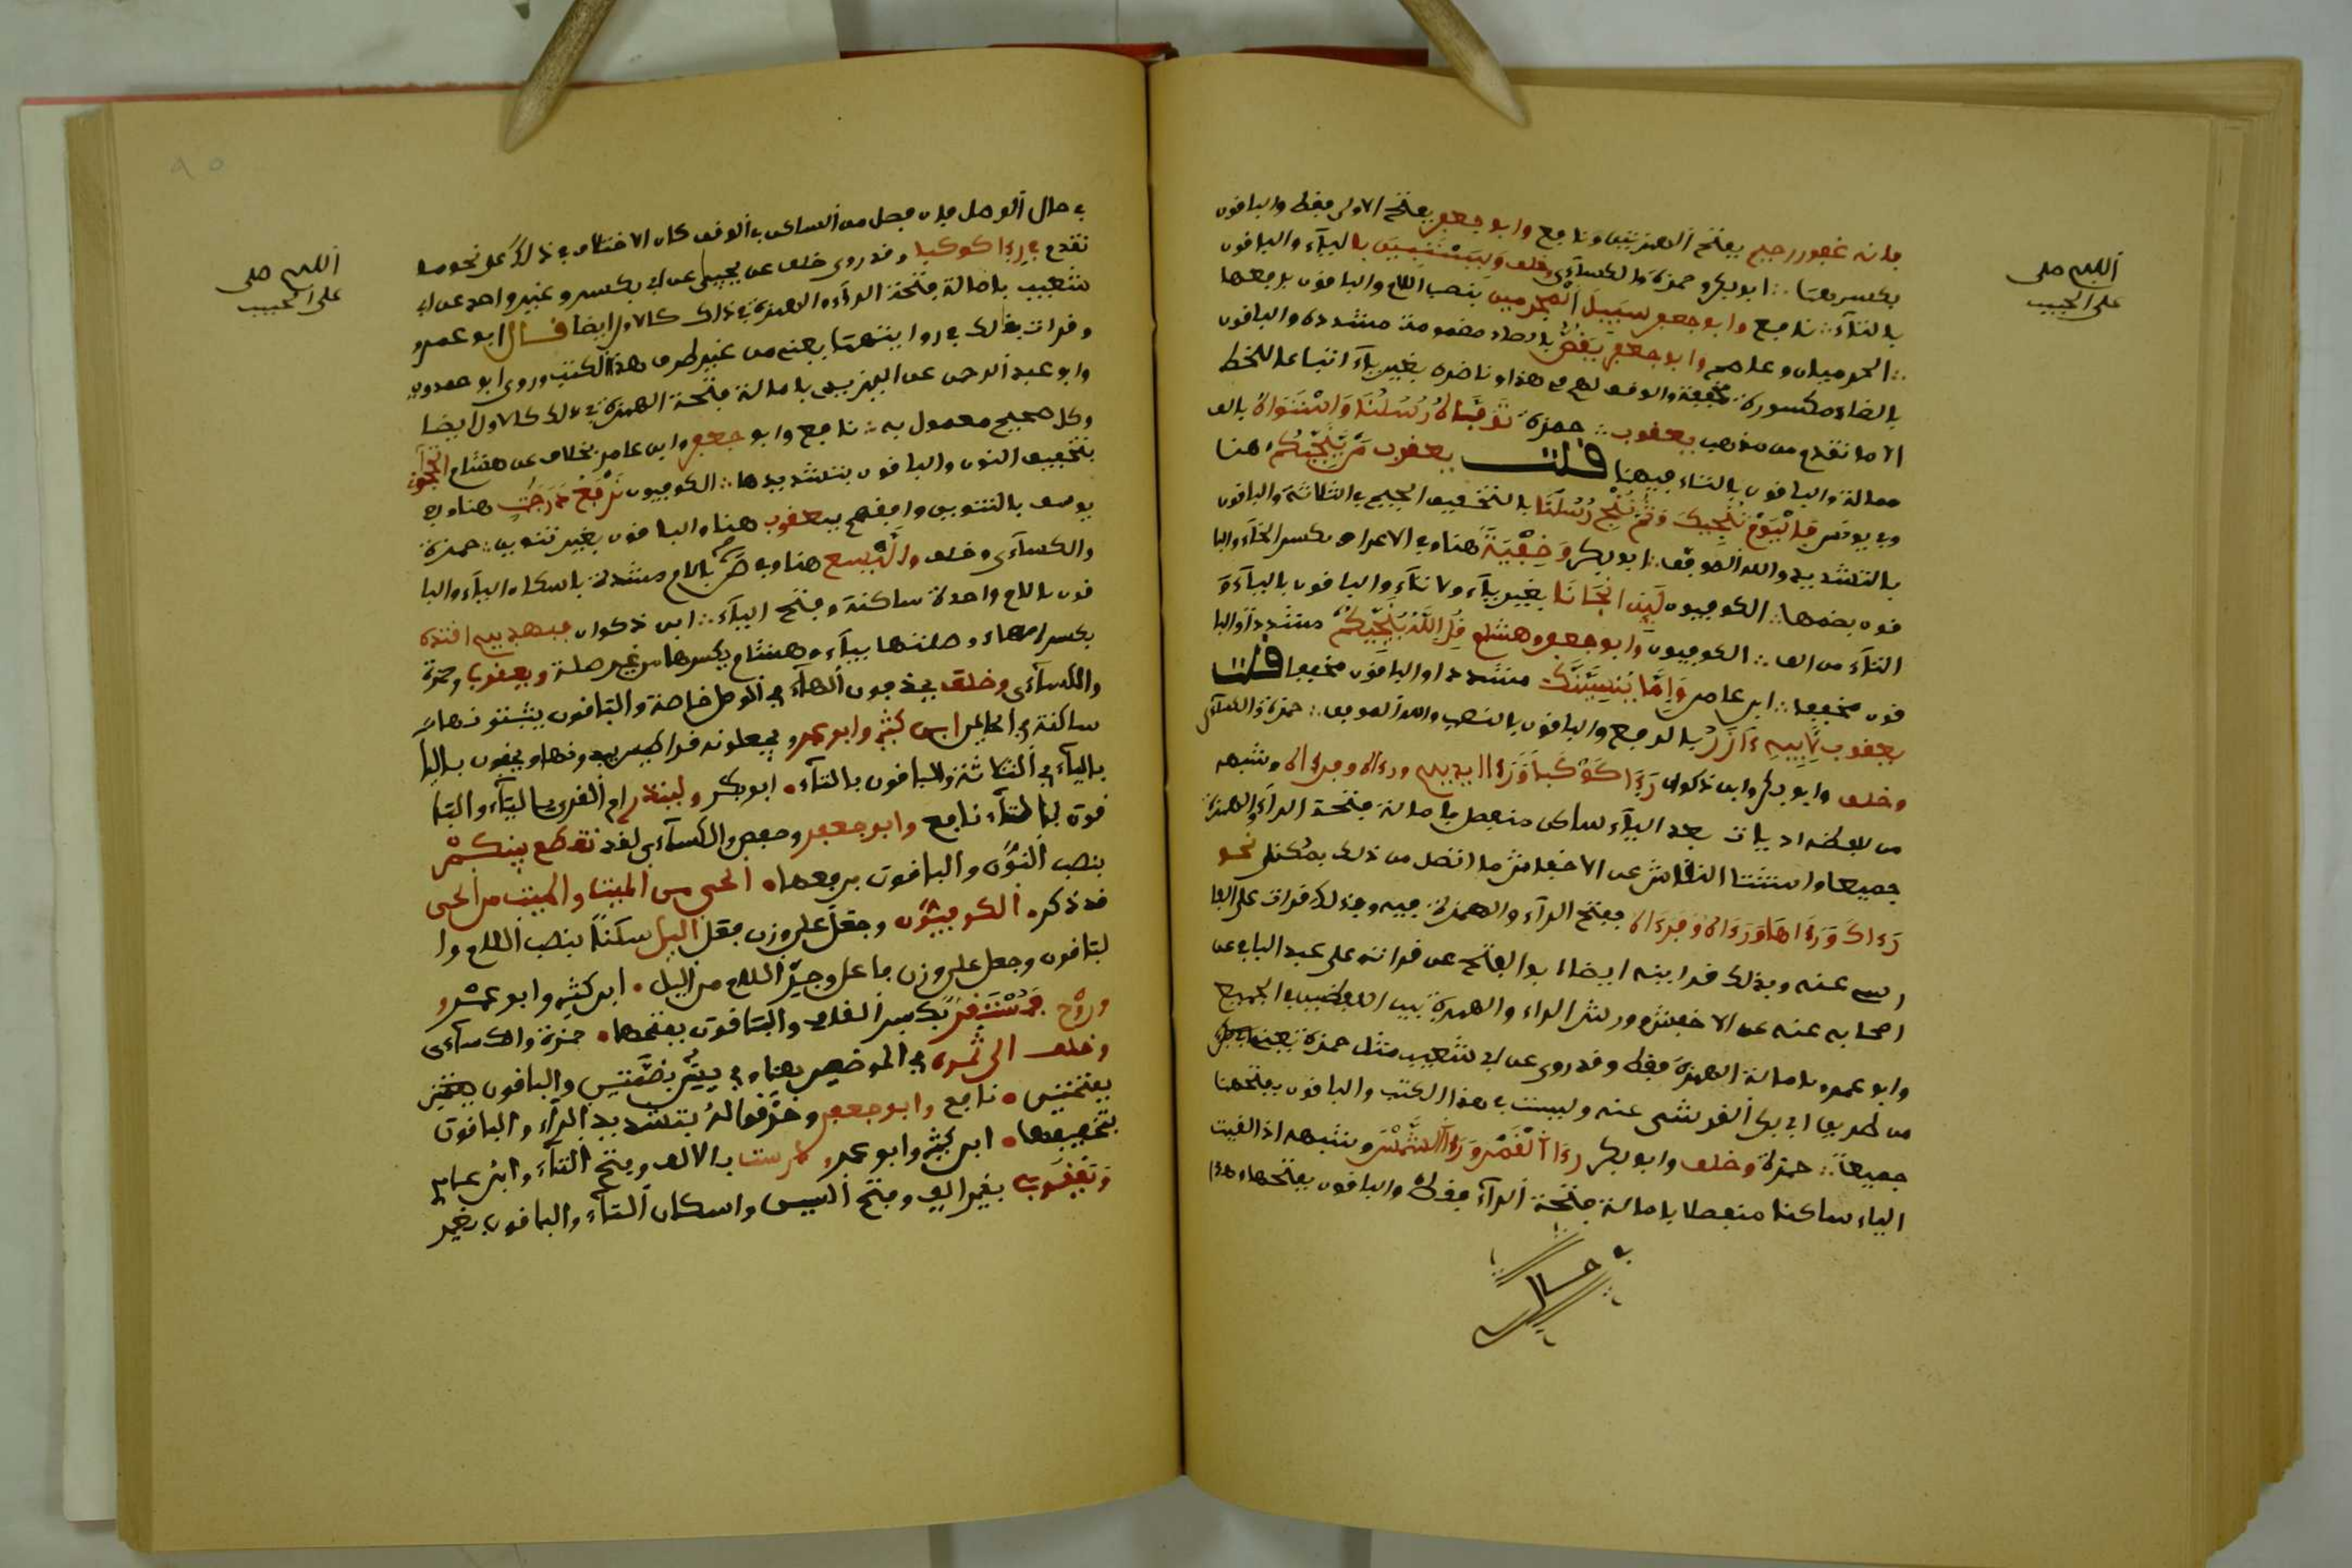 فانه غفور رحيم بفتح الهمزتين ونافع وابو جعفر بفتح الاولى فقط والباقون
بكسرهما ∴ ابو بكر وحمزة والكسآءى وخلف وليستبين باليآء والباقون
بالتآء ∴ نافع وابو جعفر سبيل المجرمين بنصب اللام والباقون برفعها
∴ الحرميان وعاصم وابو جعفر يقص بالصاد مضمومة مشددة والباقون
بالضاد مكسورة مخففة والوقف لهم في هذا ونا ضره بغير يآء اتباعا للخط
الا ما تقدم من مذهب يعقوب ∴ حمزة توفىاه رسلنا واستهواه بالف
ممالة والباقون بالتاء فيهما قلت يعقوب من ينجيكم هنا
وفي يونس فاليوم ننجيك وثم ننجي رسلنا بالتخفيف الجميع في الثلاثة والباقون
بالتشديد والله الموفق ∴ ابو بكر وخفية هنا وفي الاعراف بكسر الخآء والبا
قون بضمها ∴ الكوفيون لين انجانا بغير يآء ولا تآء والباقون باليآء و
التآء من الف ∴ الكوفيون وابو جعفر وهشام قل الله ينجيكم مشددا والبا
قون مخففا ∴ ابن عامر واما ينسينك مشددا والباقون مخففا قلت
يعقوب لابيه ءازر بالرفع والباقون بالنصب والله الموفق ∴ حمزة والكسآءى
وخلف وابو بكر وابن ذكوان رءا كوكبا ورءا ايديهم ورءاه وفرءاه وشبهه
من لفظه اذا يات بعد اليآء ساكن منفصل بامالة فتحة الرآء والهمزة
جميعا واستثنا النقاش عن الاخفش ما اتصل من ذلك بمكنى نحو
رءاك ورءاها ورءاه وفرءاه بفتح الرآء والهمزة فيه وبذلك قرات على الفا
رسي عنه وبذلك قراىته ايضا ابو الفتح عن قراءته على عبد الباقي عن
اصحابه عنه عن الاخفش وورش الراء والهمزة بين اللفظين في الجميع
وابو عمرو بامالة الهمزة فقط وقد روى عن ابي شعيب مثل حمزة
من طريق ابي بكر القرشى عنه وليست في هذا الكتب والباقون بفتحهما
جميعاً ∴ حمزة وخلف وابو بكر رءا القمر ورءا الشمس وشبهه اذا لقيت
الياء ساكنا منفصلا بامالة فتحة الرآء فقط والباقون بفتحها وهذا
اللهم صلى
على الحبيب
في حال الوصل فان فصل من الساكن في الوقف كان الاختلاف في ذلك على نحو ما
تقدم في رءا كوكبا وقد روى خلف عن يحيى عن ابي بكر وغير واحد عن ابي
شعيب بامالة فتحة الرآء والهمزة في ذلك كالاول ايضا قال ابو عمرو
وقرات بذلك في روايتهما يعنى من غير طرف هذا الكتب وروى ابو حمدون
وابو عبد الرحمن عن اليزيدي بامالة فتحة الهمزة في ذلك كالاول ايضا
وكل صحيح معمول به ∴ نافع وابو جعفر وابن عامر بخلاف عن هشام اتحآجونى
بتخفيف النون والباقون بتشديدها ∴ الكوفيون نرفع درجت هنا وفي
يوسف بالتنوين وافقهم يعقوب هنا والباقون بغير تنوين ∴ حمزة
والكسآءى وخلف واليسع هنا وفي ص بلام مشددة باسكان اليآء والبا
قون بلام واحدة ساكنة وفتح اليآء ∴ ابن ذكوان فبهديهم اقتده
بكسر الهاء وصلتها بيآء وهشام بكسرها من غير صلة ويعقوب وحمزة
والكسآءى وخلف يحذفون الهآء في الوصل خاصة والباقون يثبتونها
ساكنة في الحالين ابن كثير وابو عمرو يجعلونه قراطيس يبدونها ويخفون باليا
باليآء في الثلاثة والباقون بالتآء • ابو بكر ولينذر ام القرى باليآء والبا
قون بالتآء نافع وابو جعفر وحفص والكسآءى لقد تقطع بينكم
بنصب النون والباقون برفعها • الحى من الميت والميت من الحى
قد ذكر • الكوفيون وجعل على وزن فعل اليل سكنا بنصب اللام وا
لباقون وجعل على وزن فاعل وجر اللام من اليل • ابن كثير وابو عمرو
وروح فمستقر بكسر القاف والباقون بفتحها • حمزة والكسآءى
وخلف الى ثمره في الموضعين هنا وفي يس بضمتين والباقون
بفتحتين • نافع وابو جعفر وخرقوا له بتشديد الرآء والباقون
بتخفيفها • ابن كثير وابو عمرو درست بالالف وفتح التآء وابن عامر
ويعقوب بغير الف وفتح السين واسكان التآء والباقون بغير
اللهم صلى
على الحبيب